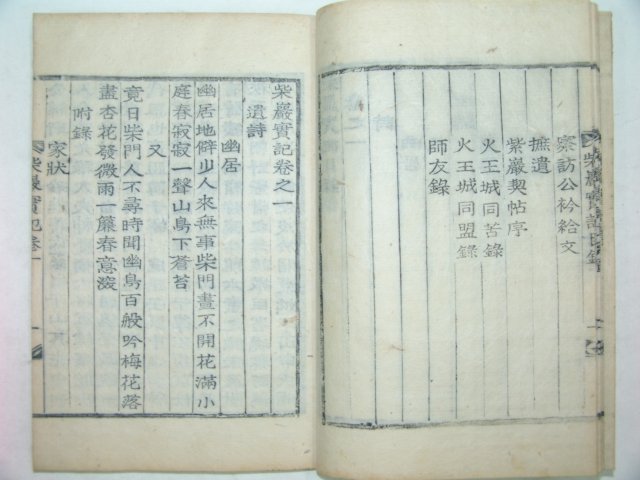 察訪公衿給文
摭遺
紫巖契帖序
火王城同苦錄
火王城同盟錄
師友錄
柴巖實記目錄
一
柴巖實記卷之一
遺詩
幽居
幽居地僻少人來無事柴門晝不開花滿小
庭春寂寂一聲山鳥下蒼苔
又
竟日柴門人不尋時聞幽鳥百般吟梅花落
盡杏花發微雨一簾春意深
附錄
家狀
柴巖實記卷一
一